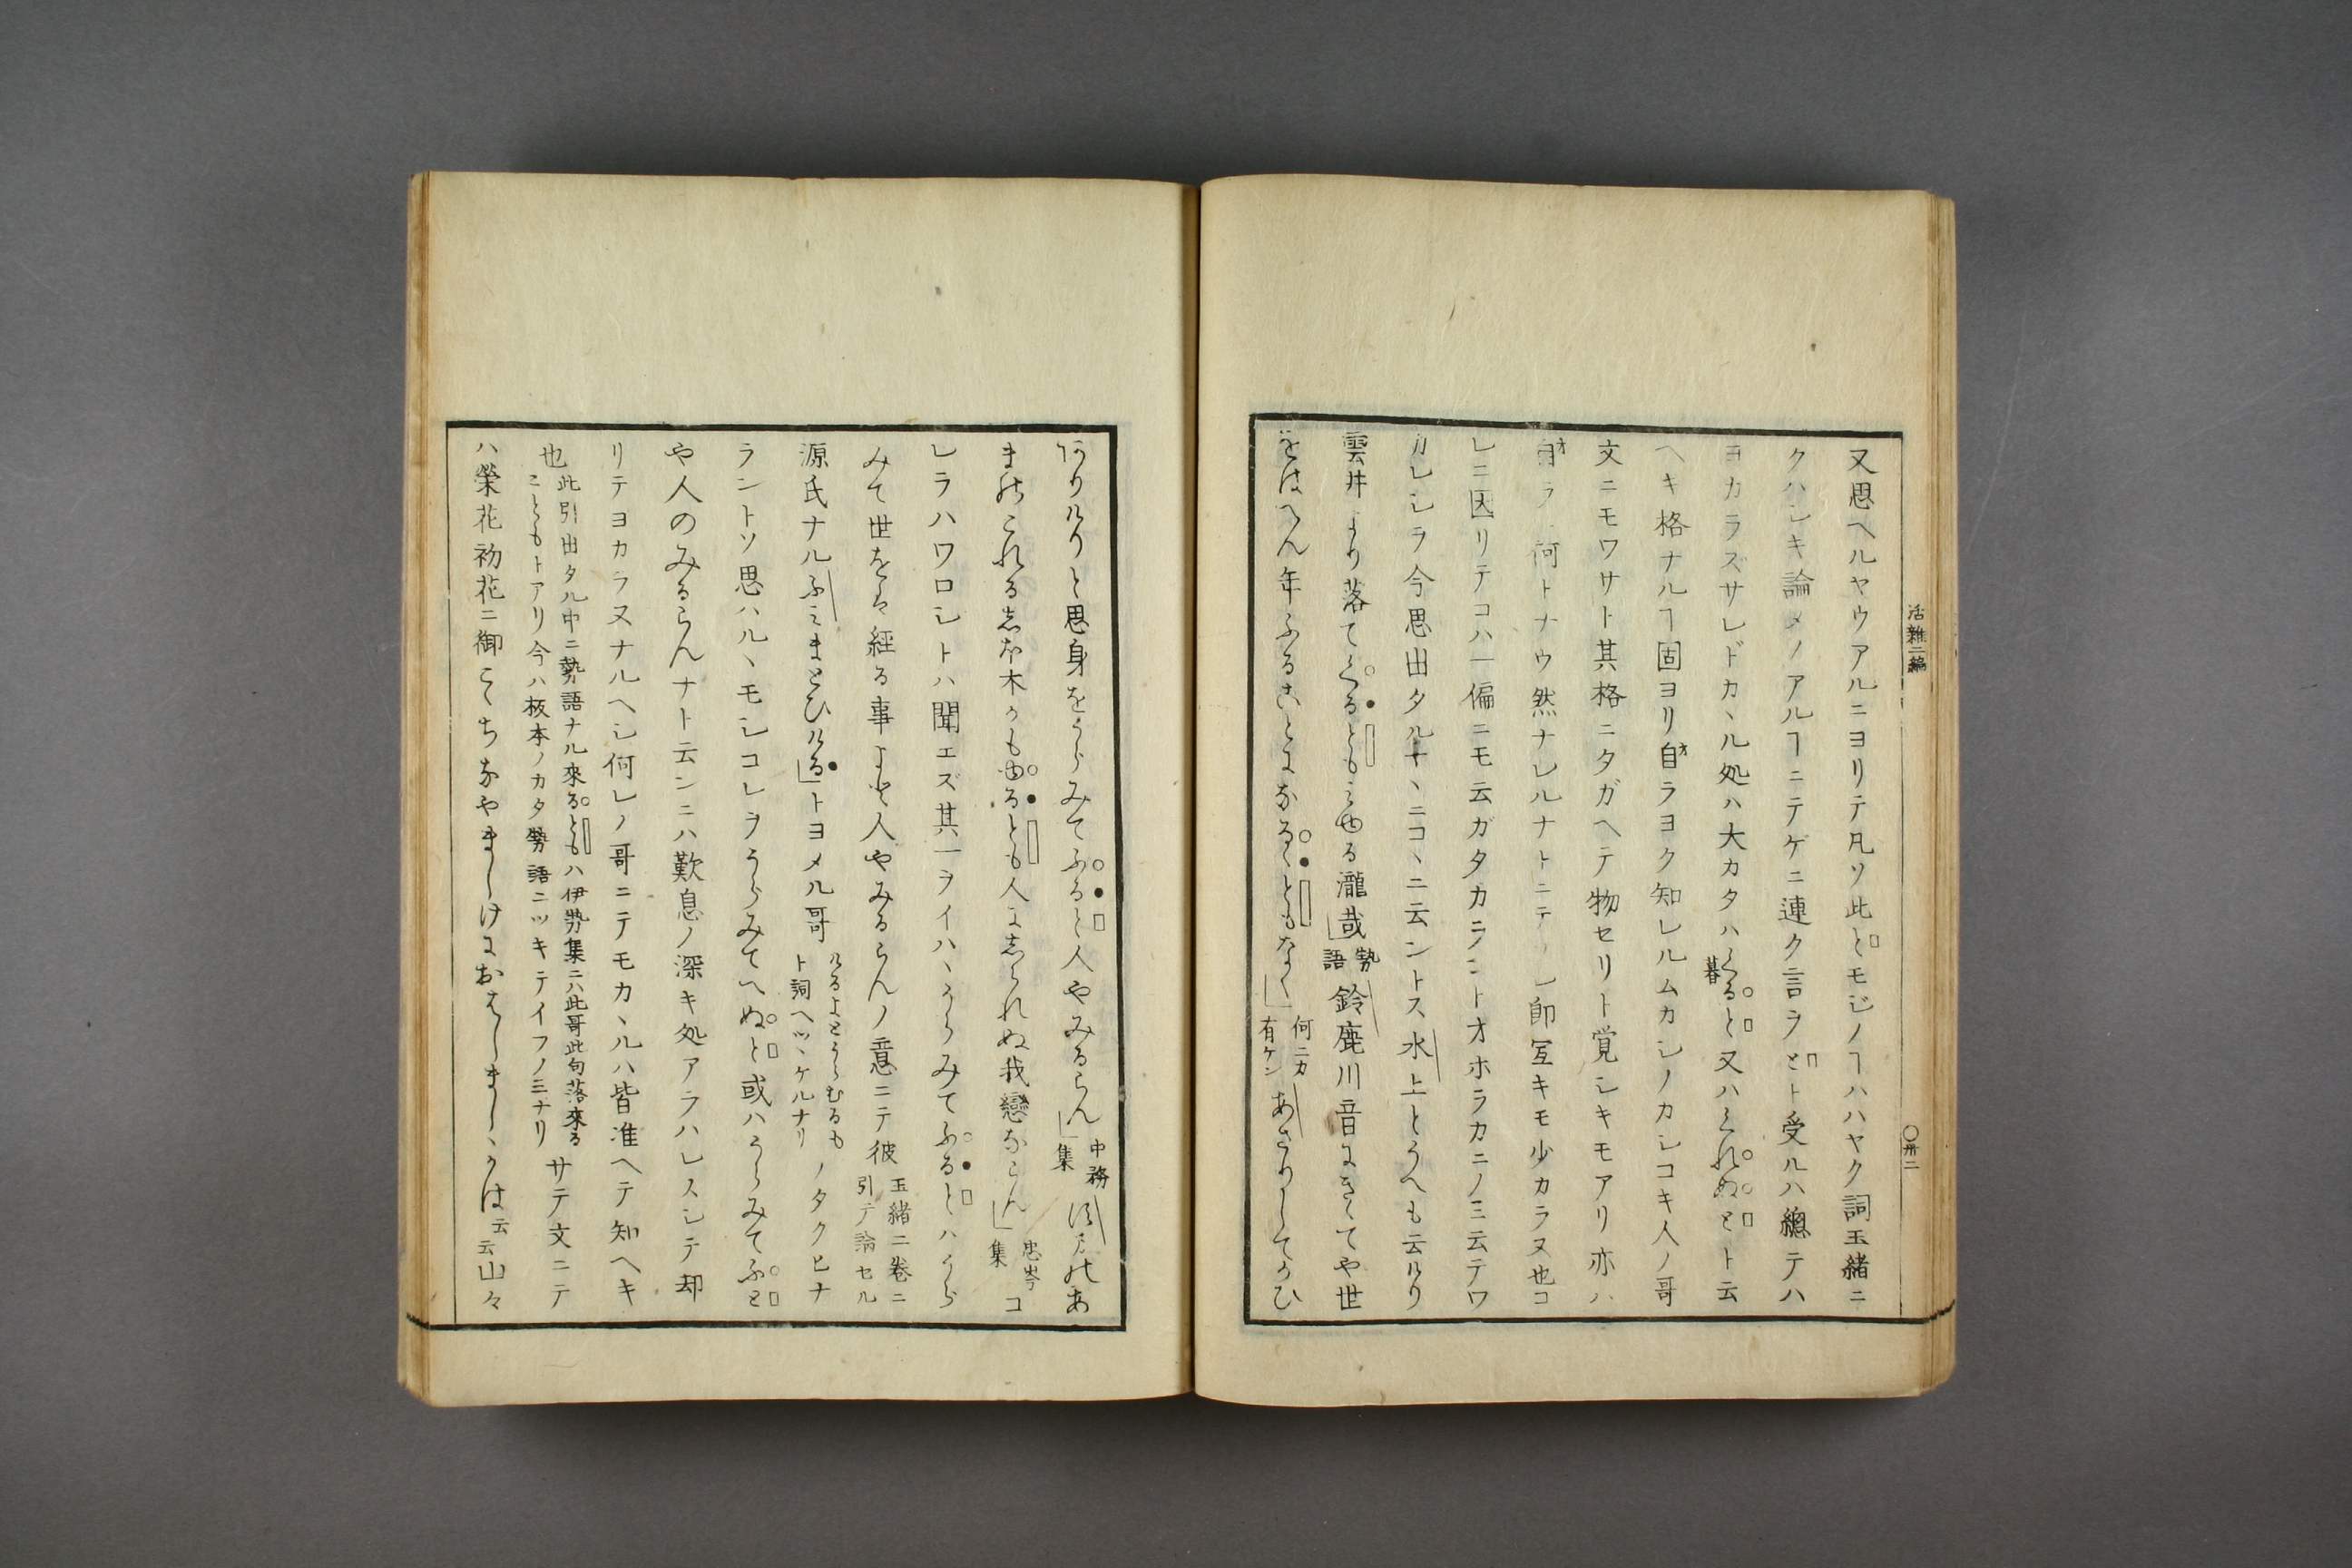 活雜二編
〇卅二
又思ヘルヤウアルニヨリテ凡ソ此とモジノヿハハヤク詞玉緒ニ
クハシキ論メノアルヿニテゲニ連ク言ヲとト受ルハ總テハ
ヨカラズサレドカヽル処ハ大カタハくると又ハくれぬとト云
暮
ヘキ格ナルヿ固ヨリ自ラヨク知レルムカシノカシコキ人ノ哥
文ニモワサト其格ニタガヘテ物セリト覚シキモアリ亦ハ
自ラ何トナウ然ナレルナトニテ
レニ因リテコハ一偏ニモ云ガタカランニトオホラカニノミ云テワ
カレシヲ今思出タルナヽニコヽニ云ントス水上とうへも云けり
雲井より落てくるともみゆる瀧哉
勢語
鈴鹿川音にきくてや世
をはへん年ふることになるともなく
何ニカ有ケン
あさりしてかひ
ありけりと思身をうらみてふると人やみるらん
中務集
まのこれる志な木かもゆるとも人に志られぬ我戀ならん
忠岑集
コ
レラハワロシトハ聞エズ其一ヲイハヽうらみてふるとハうら
みて世をは経る事よと人やみるらんノ意ニテ彼
玉緒二卷ニ
引テ論セル
源氏ナルふみまとひける」トヨメル哥
けるよとうらむるも
ト詞ヘツヽケルナリ
ノタクヒナ
ラントソ思ハルヽモシコレヲうらみてへぬと或ハうらみてふと
や人のみるらんナト云ンニハ歎息ノ深キ処アラハレスシテ却
リテヨカラヌナルヘシ何レノ哥ニテモカヽルハ皆准ヘテ知ヘキ
也
此引出タル中ニ勢語ナル來るともハ伊勢集ニハ此哥此句落來る
ことともトアリ今ハ板本ノカタ勢語ニツキテイフノミナリ
サテ文ニテ
ハ榮花初花ニ御こゝちなやましけにおはしましゝかは云云山々